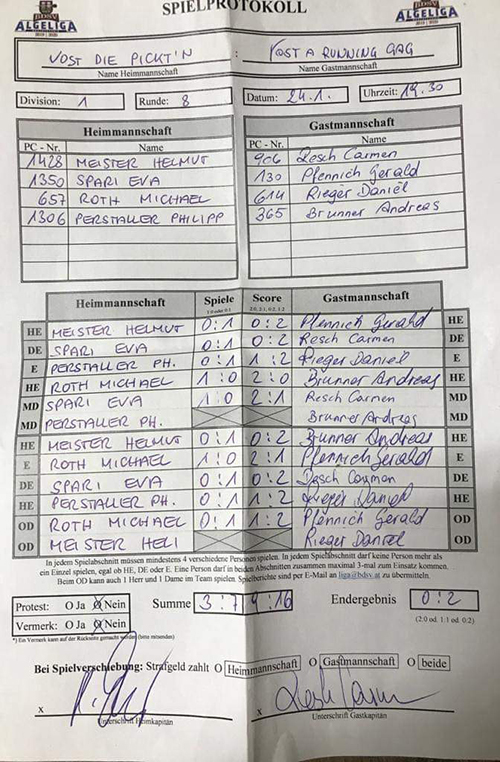 BDSV
ALGELIGA
SPIELPROTOKOLL
BDSV
ALGELIGA
VOST DIE PICKT'N : VOST A RUNNING GAG
Name Heimmannschaft Name Gastmannschaft
Division: 1 Runde: 8 Datum: 24.1. Uhrzeit: 19.30
Heimmannschaft Gastmannschaft
PC - Nr. Name PC - Nr. Name
1428 MEISTER HELMUT 906 Resch Carmen
1350 SPARI EVA 130 Pfennich Gerald
657 ROTH MICHAEL 614 Rieger Daniel
1306 PERSTALLER PHILIPP 365 Brunner Andreas
Heimmannschaft Spiele Score Gastmannschaft
1:0 od. 0:1 2:0, 2:1, 0:2, 1:2
HE MEISTER HELMUT 0:1 0:2 Pfennich Gerald HE
DE SPARI EVA 0:1 0:2 Resch Carmen DE
E PERSTALLER PH. 0:1 1:2 Rieger Daniel E
HE ROTH MICHAEL 1:0 2:0 Brunner Andreas HE
MD SPARI EVA 1:0 2:1 Resch Carmen MD
MD PERSTALLER PH. Brunner Andreas MD
HE MEISTER HELMUT 0:1 0:2 Brunner Andreas HE
E ROTH MICHAEL 1:0 2:1 Pfennich Gerald E
DE SPARI EVA 0:1 0:2 Resch Carmen DE
HE PERSTALLER PH. 0:1 1:2 Rieger Daniel HE
OD ROTH MICHAEL 0:1 1:2 Pfennich Gerald OD
OD MEISTER HELI Rieger Daniel OD
In jedem Spielabschnitt müssen mindestens 4 verschiedene Personen spielen. In jedem Spielabschnitt darf keine Person mehr als
ein Einzel spielen, egal ob HE, DE oder E. Eine Person darf in beiden Abschnitten zusammen maximal 3-mal zum Einsatz kommen.
Beim OD kann auch 1 Herr und 1 Dame im Team spielen. Spielberichte sind per E-Mail an liga@bdsv.at zu übermitteln.
Protest: O Ja O Nein Summe 3:7 9:16 Endergebnis 0:2
Vermerk: O Ja O Nein (2:0 od. 1:1 od. 0:2)
*) Ein Vermerk kann auf der Rückseite gemacht werden (bitte mitsenden)
Bei Spielverschiebung: Strafgeld zahlt O Heimmannschaft O Gastmannschaft O beide
x x
Unterschrift Heimkapitän Unterschrift Gastkapitän